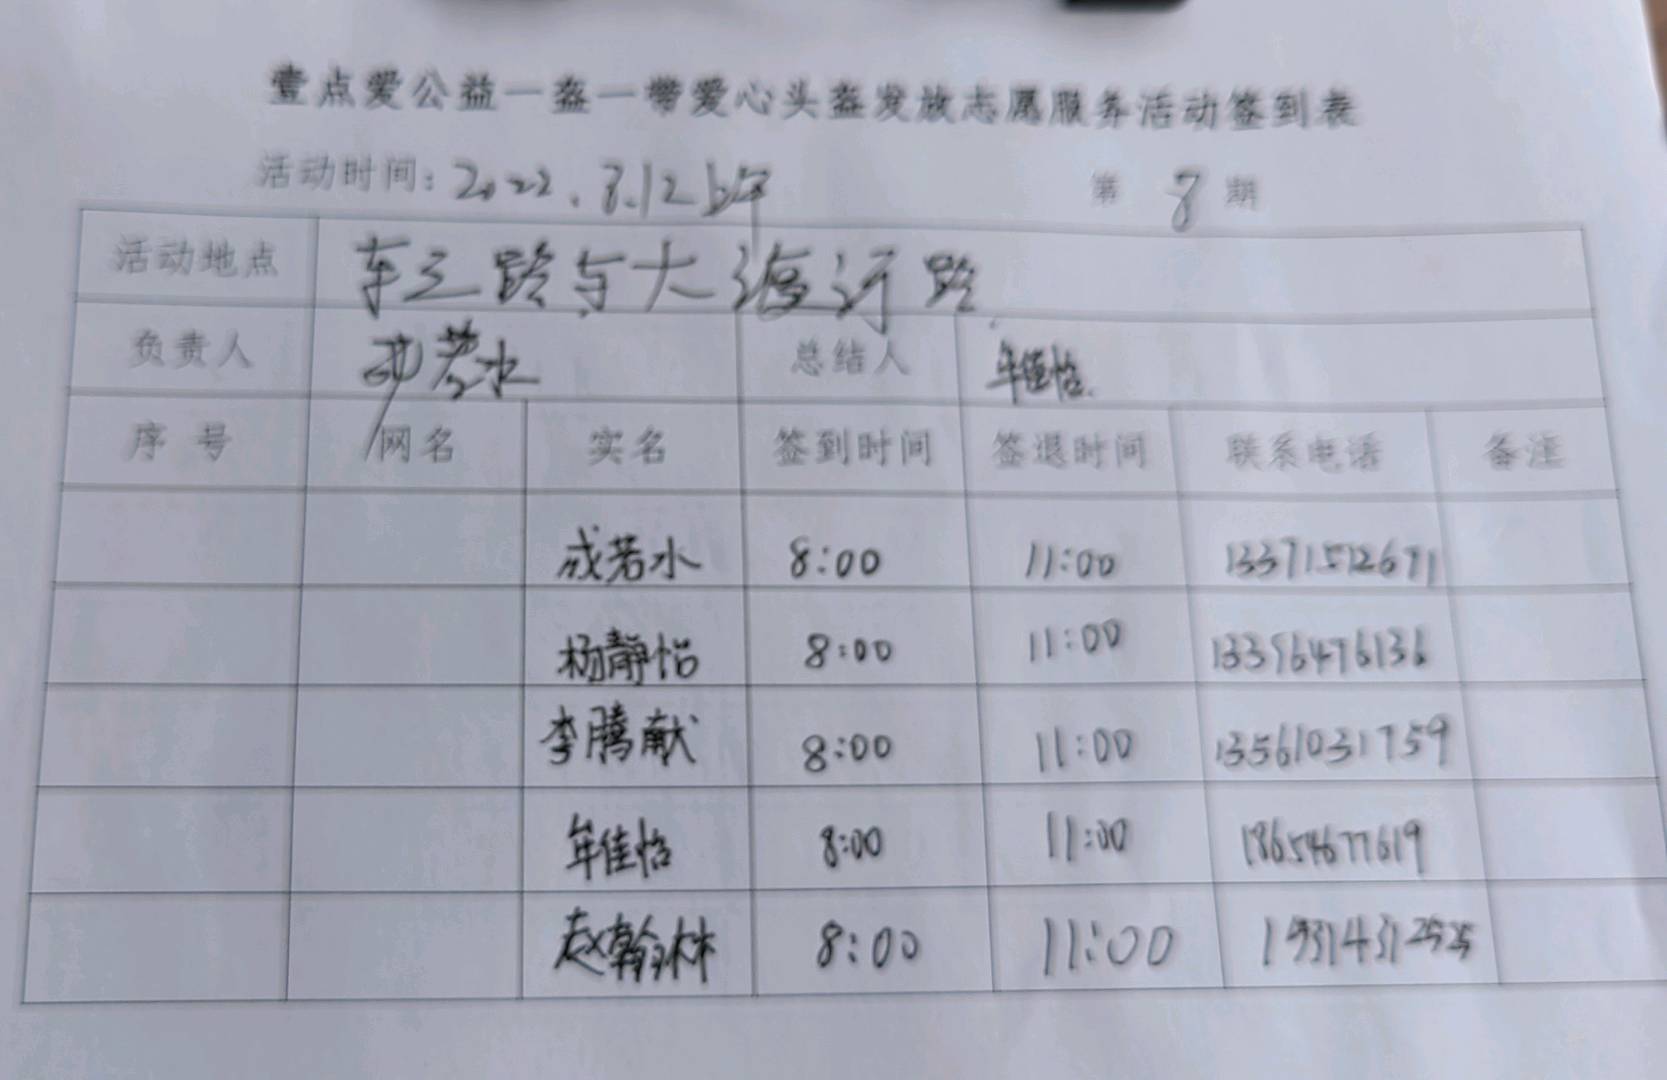 壹点爱公益一盔一带爱心头盔发放志愿服务活动签到表
活动时间：2022.8.12上午 第 8 期
活动地点 东三路与大渡河路
负责人 成若水 总结人 牟佳怡
序 号 网名 实名 签到时间 签退时间 联系电话 备注
成若水 8:00 11:00 13371512671
杨静怡 8:00 11:00 13356476136
李腾献 8:00 11:00 13561031759
牟佳怡 8:00 11:00 18654677619
赵翰林 8:00 11:00